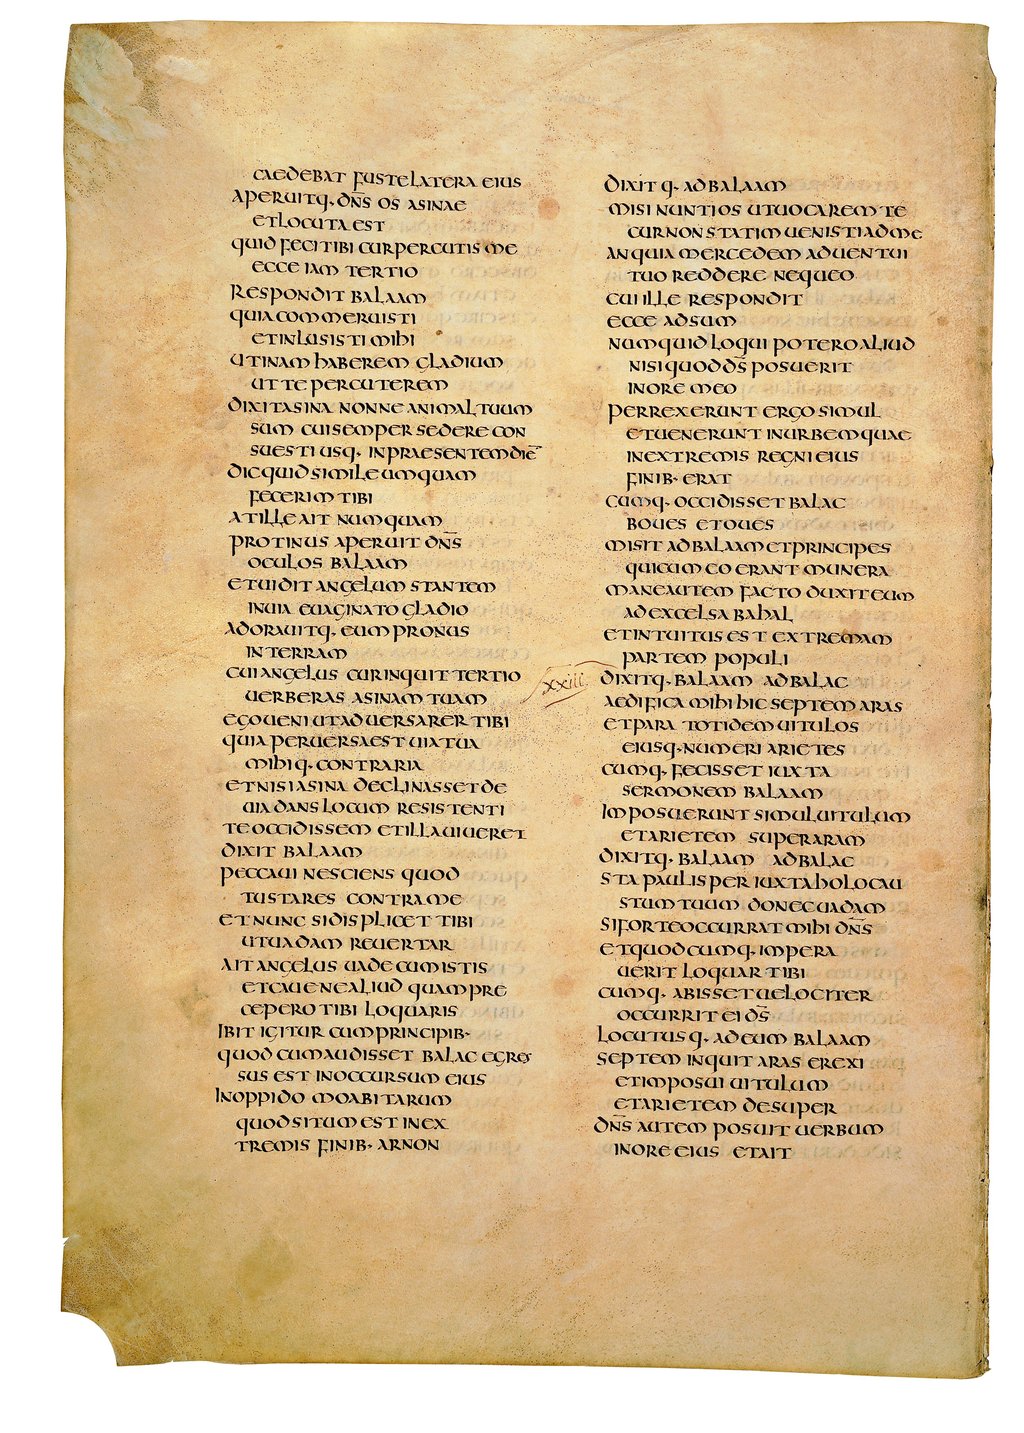 CAEDEBAT FUSTE LATERA EIUS
APERUITQ· DN̄S OS ASINAE
ET LOCUTA EST
QUID FECI TIBI CUR PERCUTIS ME
ECCE IAM TERTIO
RESPONDIT BALAAM
QUIA COMMERUISTI
ET INLUSISTI MIHI
UTINAM HABEREM GLADIUM
UT TE PERCUTEREM
DIXIT ASINA NONNE ANIMAL TUUM
SUM CUI SEMPER SEDERE CON
SUESTI USQ· IN PRAESENTEM DIĒ
DIC QUID SIMILE UMQUAM
FECERIM TIBI
AT ILLE AIT NUMQUAM
PROTINUS APERUIT DN̄S
OCULOS BALAAM
ET UIDIT ANGELUM STANTEM
IN UIA EUAGINATO GLADIO
ADORAUITQ· EUM PRONUS
IN TERRAM
CUI ANGELUS CUR INQUIT TERTIO
UERBERAS ASINAM TUAM
EGO UENI UT ADUERSARER TIBI
QUIA PERUERSA EST UIA TUA
MIHIQ· CONTRARIA
ET NISI ASINA DECLINASSET DE
UIA DANS LOCUM RESISTENTI
TE OCCIDISSEM ET ILLA UIUERET
DIXIT BALAAM
PECCAUI NESCIENS QUOD
TU STARES CONTRA ME
ET NUNC SI DISPLICET TIBI
UT UADAM REUERTAR
AIT ANGELUS UADE CUM ISTIS
ET CAUE NE ALIUD QUAM PRE
CEPERO TIBI LOQUARIS
IBIT IGITUR CUM PRINCIPIB·
QUOD CUM AUDISSET BALAC EGRES
SUS EST IN OCCURSUM EIUS
IN OPPIDO MOABITARUM
QUOD SITUM EST IN EX
TREMIS FINIB· ARNON
DIXITQ· AD BALAAM
MISI NUNTIOS UT UOCAREM TE
CUR NON STATIM UENISTI AD ME
AN QUIA MERCEDEM ADUENTUI
TUO REDDERE NEQUEO
CUI ILLE RESPONDIT
ECCE ADSUM
NUMQUID LOQUI POTERO ALIUD
NISI QUOD DS̄ POSUERIT
IN ORE MEO
PERREXERUNT ERGO SIMUL
ET UENERUNT IN URBEM QUAE
IN EXTREMIS REGNI EIUS
FINIB· ERAT
CUMQ· OCCIDISSET BALAC
BOUES ET OUES
MISIT AD BALAAM ET PRINCIPES
QUI CUM EO ERANT MUNERA
MANE AUTEM FACTO DUXIT EUM
AD EXCELSA BAHAL
ET INTUITUS EST EXTREMAM
PARTEM POPULI
xxiii DIXITQ· BALAAM AD BALAC
AEDIFICA MIHI HIC SEPTEM ARAS
ET PARA TOTIDEM UITULOS
EIUSQ· NUMERI ARIETES
CUMQ· FECISSET IUXTA
SERMONEM BALAAM
IMPOSUERUNT SIMUL UITULUM
ET ARIETEM SUPER ARAM
DIXITQ· BALAAM AD BALAC
STA PAULISPER IUXTA HOLOCAU
STUM TUUM DONEC UADAM
SI FORTE OCCURRAT MIHI DN̄S
ET QUODCUMQ· IMPERA
UERIT LOQUAR TIBI
CUMQ· ABISSET UELOCITER
OCCURRIT EI DS̄
LOCUTUSQ· AD EUM BALAAM
SEPTEM INQUIT ARAS EREXI
ET IMPOSUI UITULUM
ET ARIETEM DESUPER
DN̄S AUTEM POSUIT UERBUM
IN ORE EIUS ET AIT